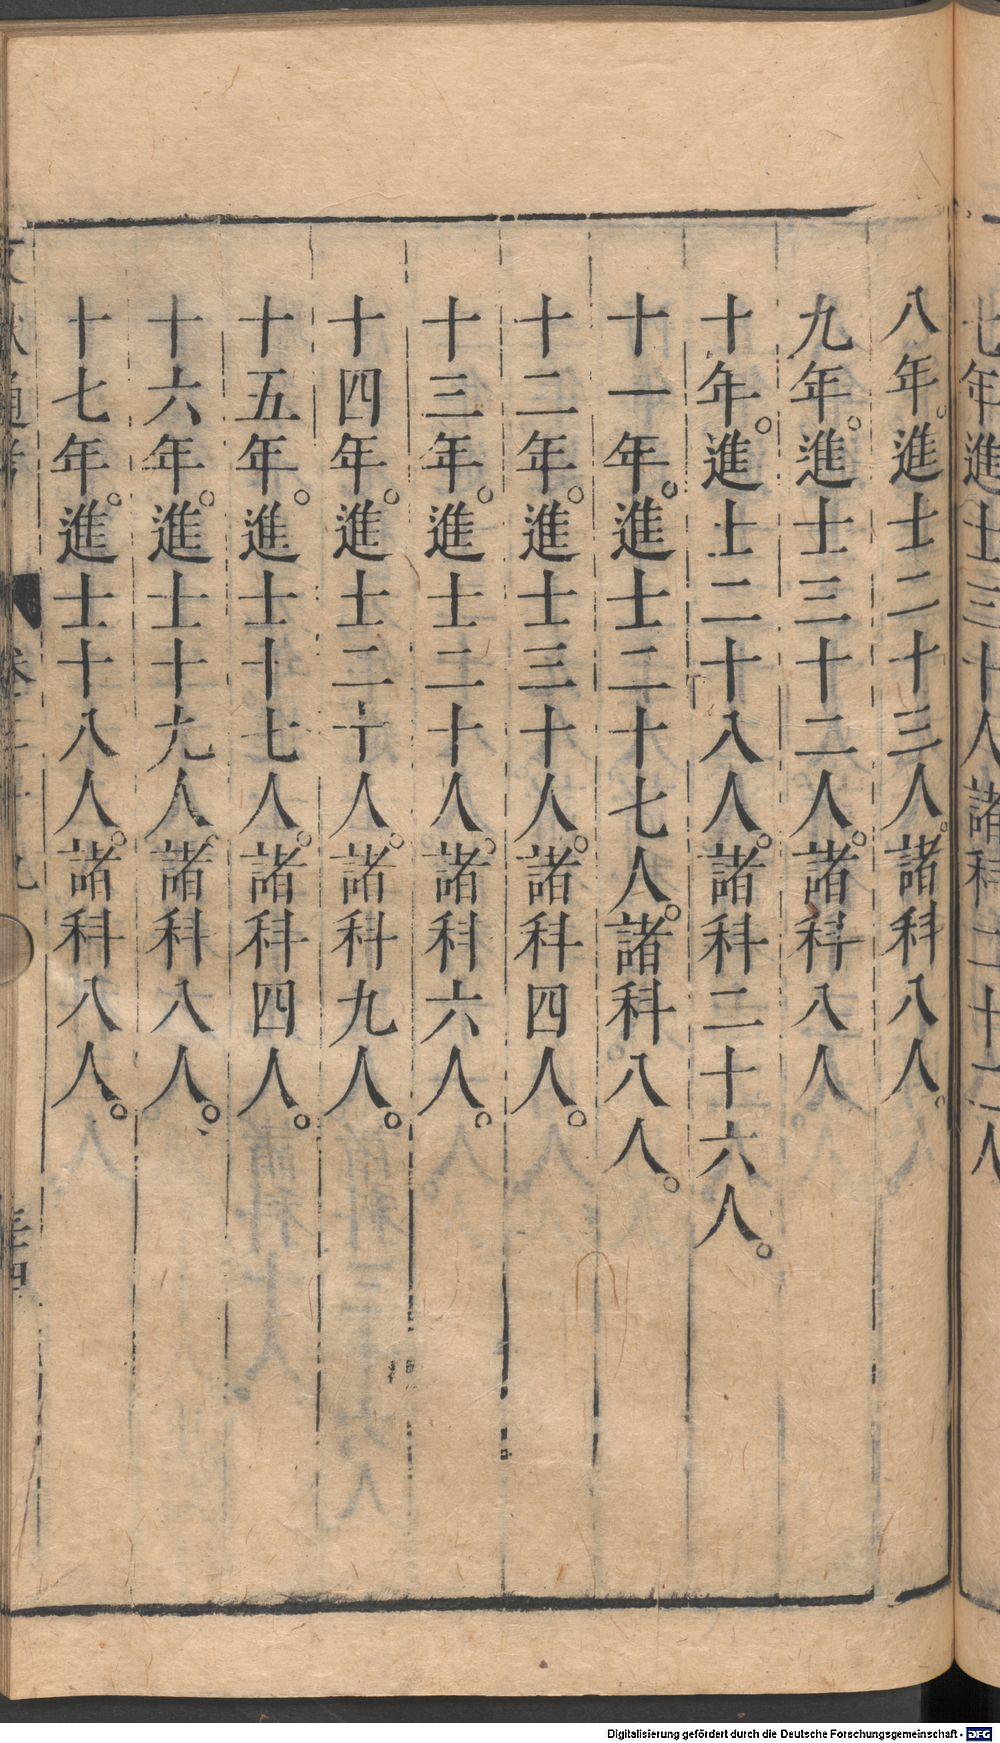 七年進士三十人諸科二十二人
八年。進士二十三人。諸科八人。
九年。進士三十二人。諸科八人
十年。進士二十八人。諸科二十六人。
十一年。進士二十七人。諸科八人。
十二年。進士三十人。諸科四人。
十三年。進士二十人。諸科六人。
十四年。進士二十人。諸科九人。
十五年。進士十七人。諸科四人。
十六年。進士十九人。諸科八人。
十七年。進士十八人。諸科八人。
Digitalisierung gefördert durch die Deutsche Forschungsgemeinschaft - DFG